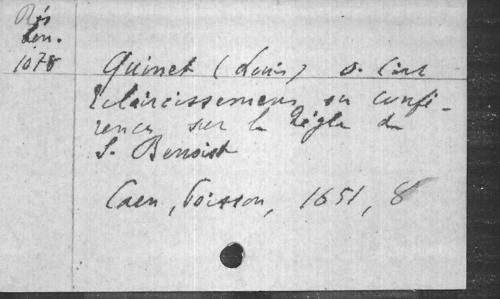 Rés
Len.
1078
Quinet (Louis) o. Cist
Eclaircissemens ou confé-
rences sur la Règle de
S. Benoist
Caen, Poisson, 1651, 8